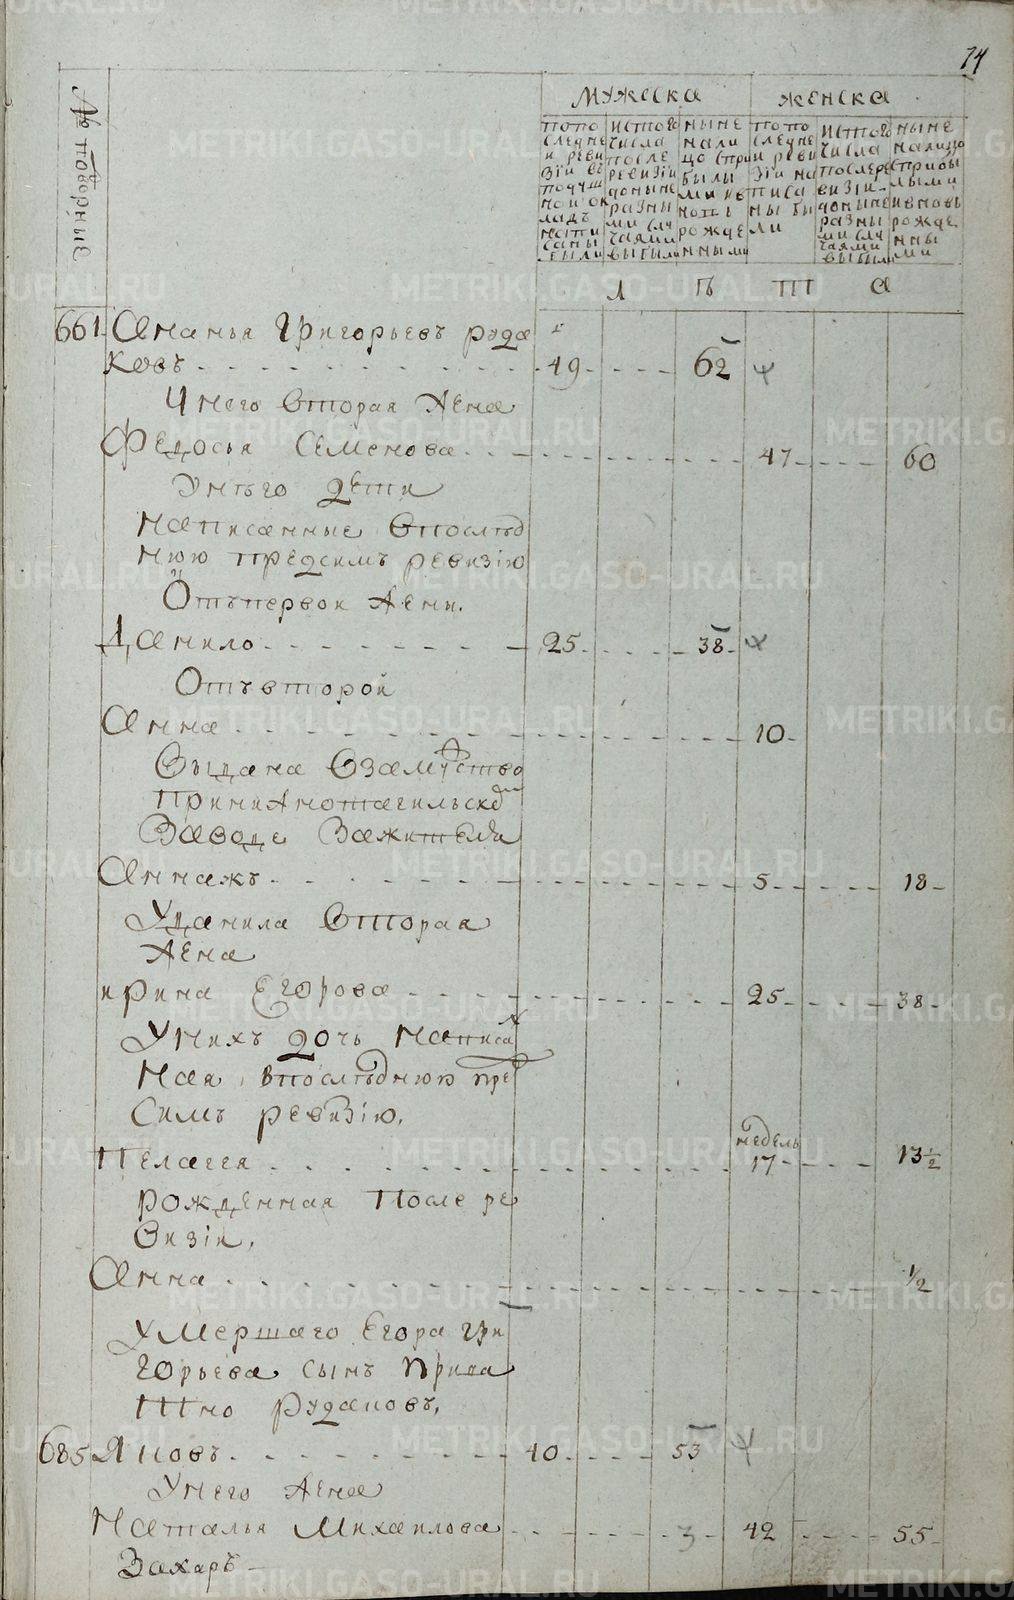 74
№ подворные
Мужеска
Женска
По по
следне
и реви
зіи въ
подуш
ной ок
ладъ
напи
саны
были
ис того
числа
после
ревизіи
доныне
разны
ми слу
чаями
выбыли
ныне
нали
цо с при
былы
ми и в
новь
рожде
нными
По по
следне
и реви
зіи на
писа
ны бы
ли
ис того
числа
после ре
визіи
доныне
разны
ми слу
чаями
выбыли
ныне
налицо
с прибы
лыми
и вновь
рожде
нны
ми
Л ѣ т а
661 Ананья Григорьевъ руда
ковъ 49 62
У него вторая жена
Федосья Семенова 47 60
У нѣго дети
написанные впослѣд
нюю предсимъ ревизію
Отъ первой жены.
Данило 25 38
Отъ второй
Анна 10
Выдана взамуство
при нижнотагильско
Заводе Зажителя
Анна жъ 5 18
У данила вторая
жена
ирина Егорова 25 38
У нихъ дочь написа
ная впослѣднюю пре
симъ ревизію.
недель
Пелагея 17 13½
рожденная После ре
визіи.
Анна ½
Умершаго Егора гри
горьева сынъ прика
тно Рудаковъ.
685 Яковъ 40 53
У него жена
Наталья Михаилова 3 42 55
Захаръ
METRIKI.GASO-URAL.RU